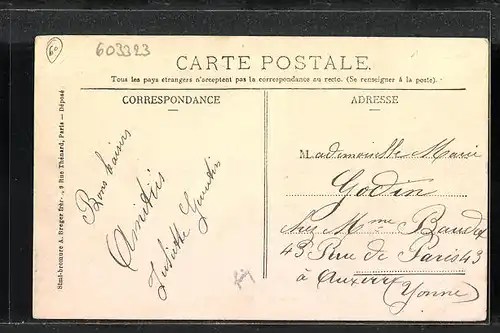 60
603323
CARTE POSTALE.
Tous les pays étrangers n'acceptent pas la correspondance au recto. (Se renseigner à la poste).
CORRESPONDANCE
ADRESSE
Simt-bromure A. Breger frères, 9 Rue Thénard, Paris — Déposé
Bons baisers
Amitiés
Juliette Quentin
Mademoiselle Marie
Godin
chez Mme Baudet
43 Rue de Paris 43
à Auxerre
(Yonne)